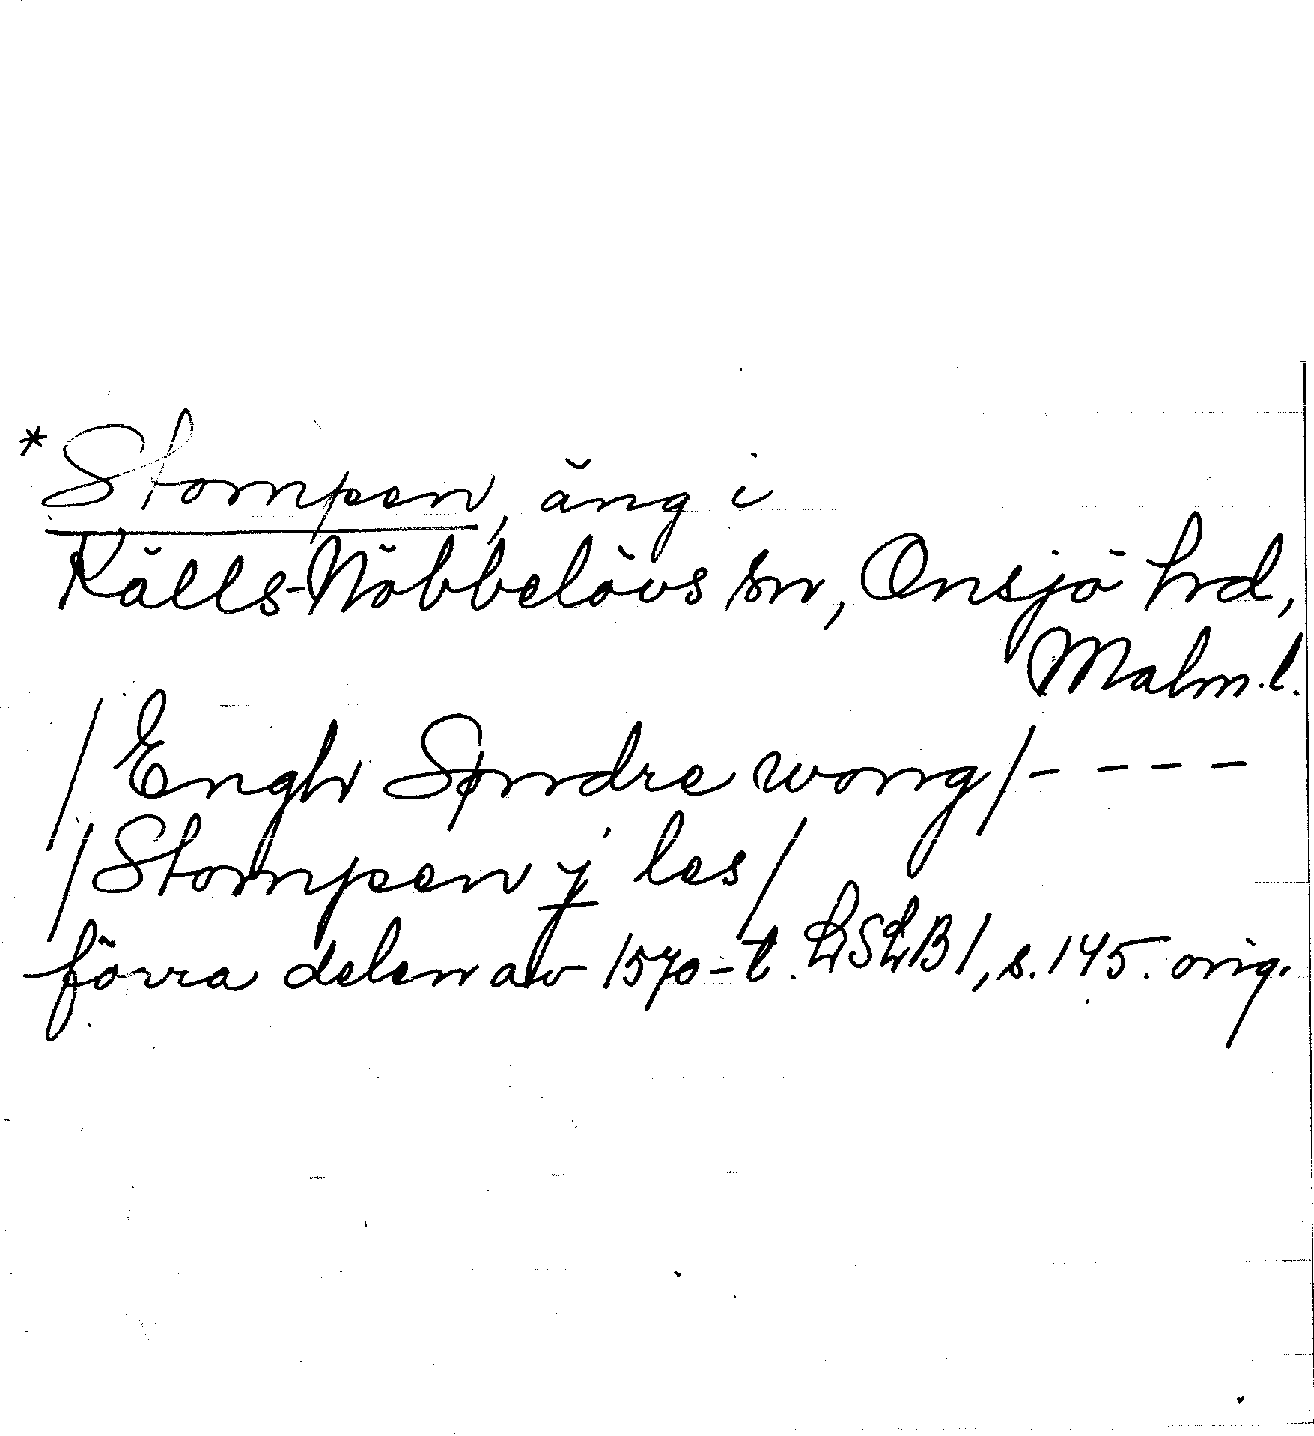 *Stompen, äng i
Källs-Nöbbelövs sn, Onsjö hd,
Malm.l.
/Engh Søndre wong/- - - -
/Stompen j les/
förra delen av 1570-t. LSLB I, s. 145. orig.